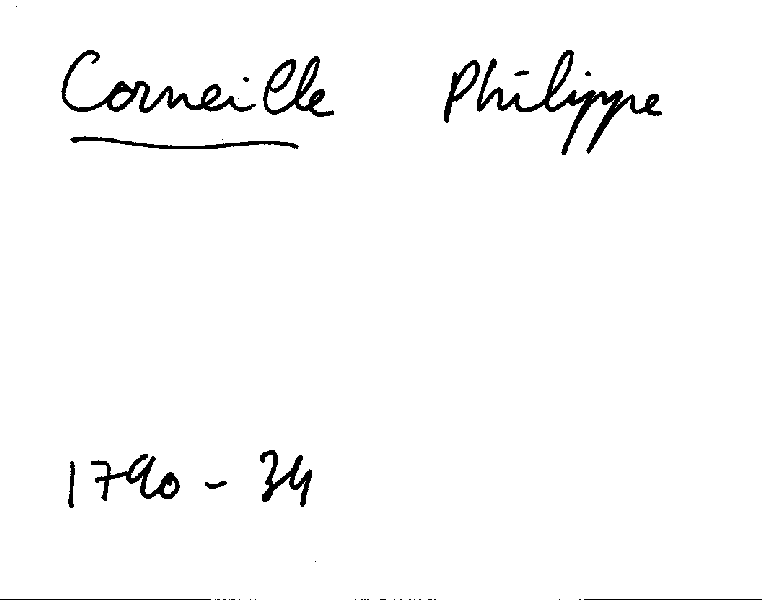 Corneille Philippe
1790 - 34